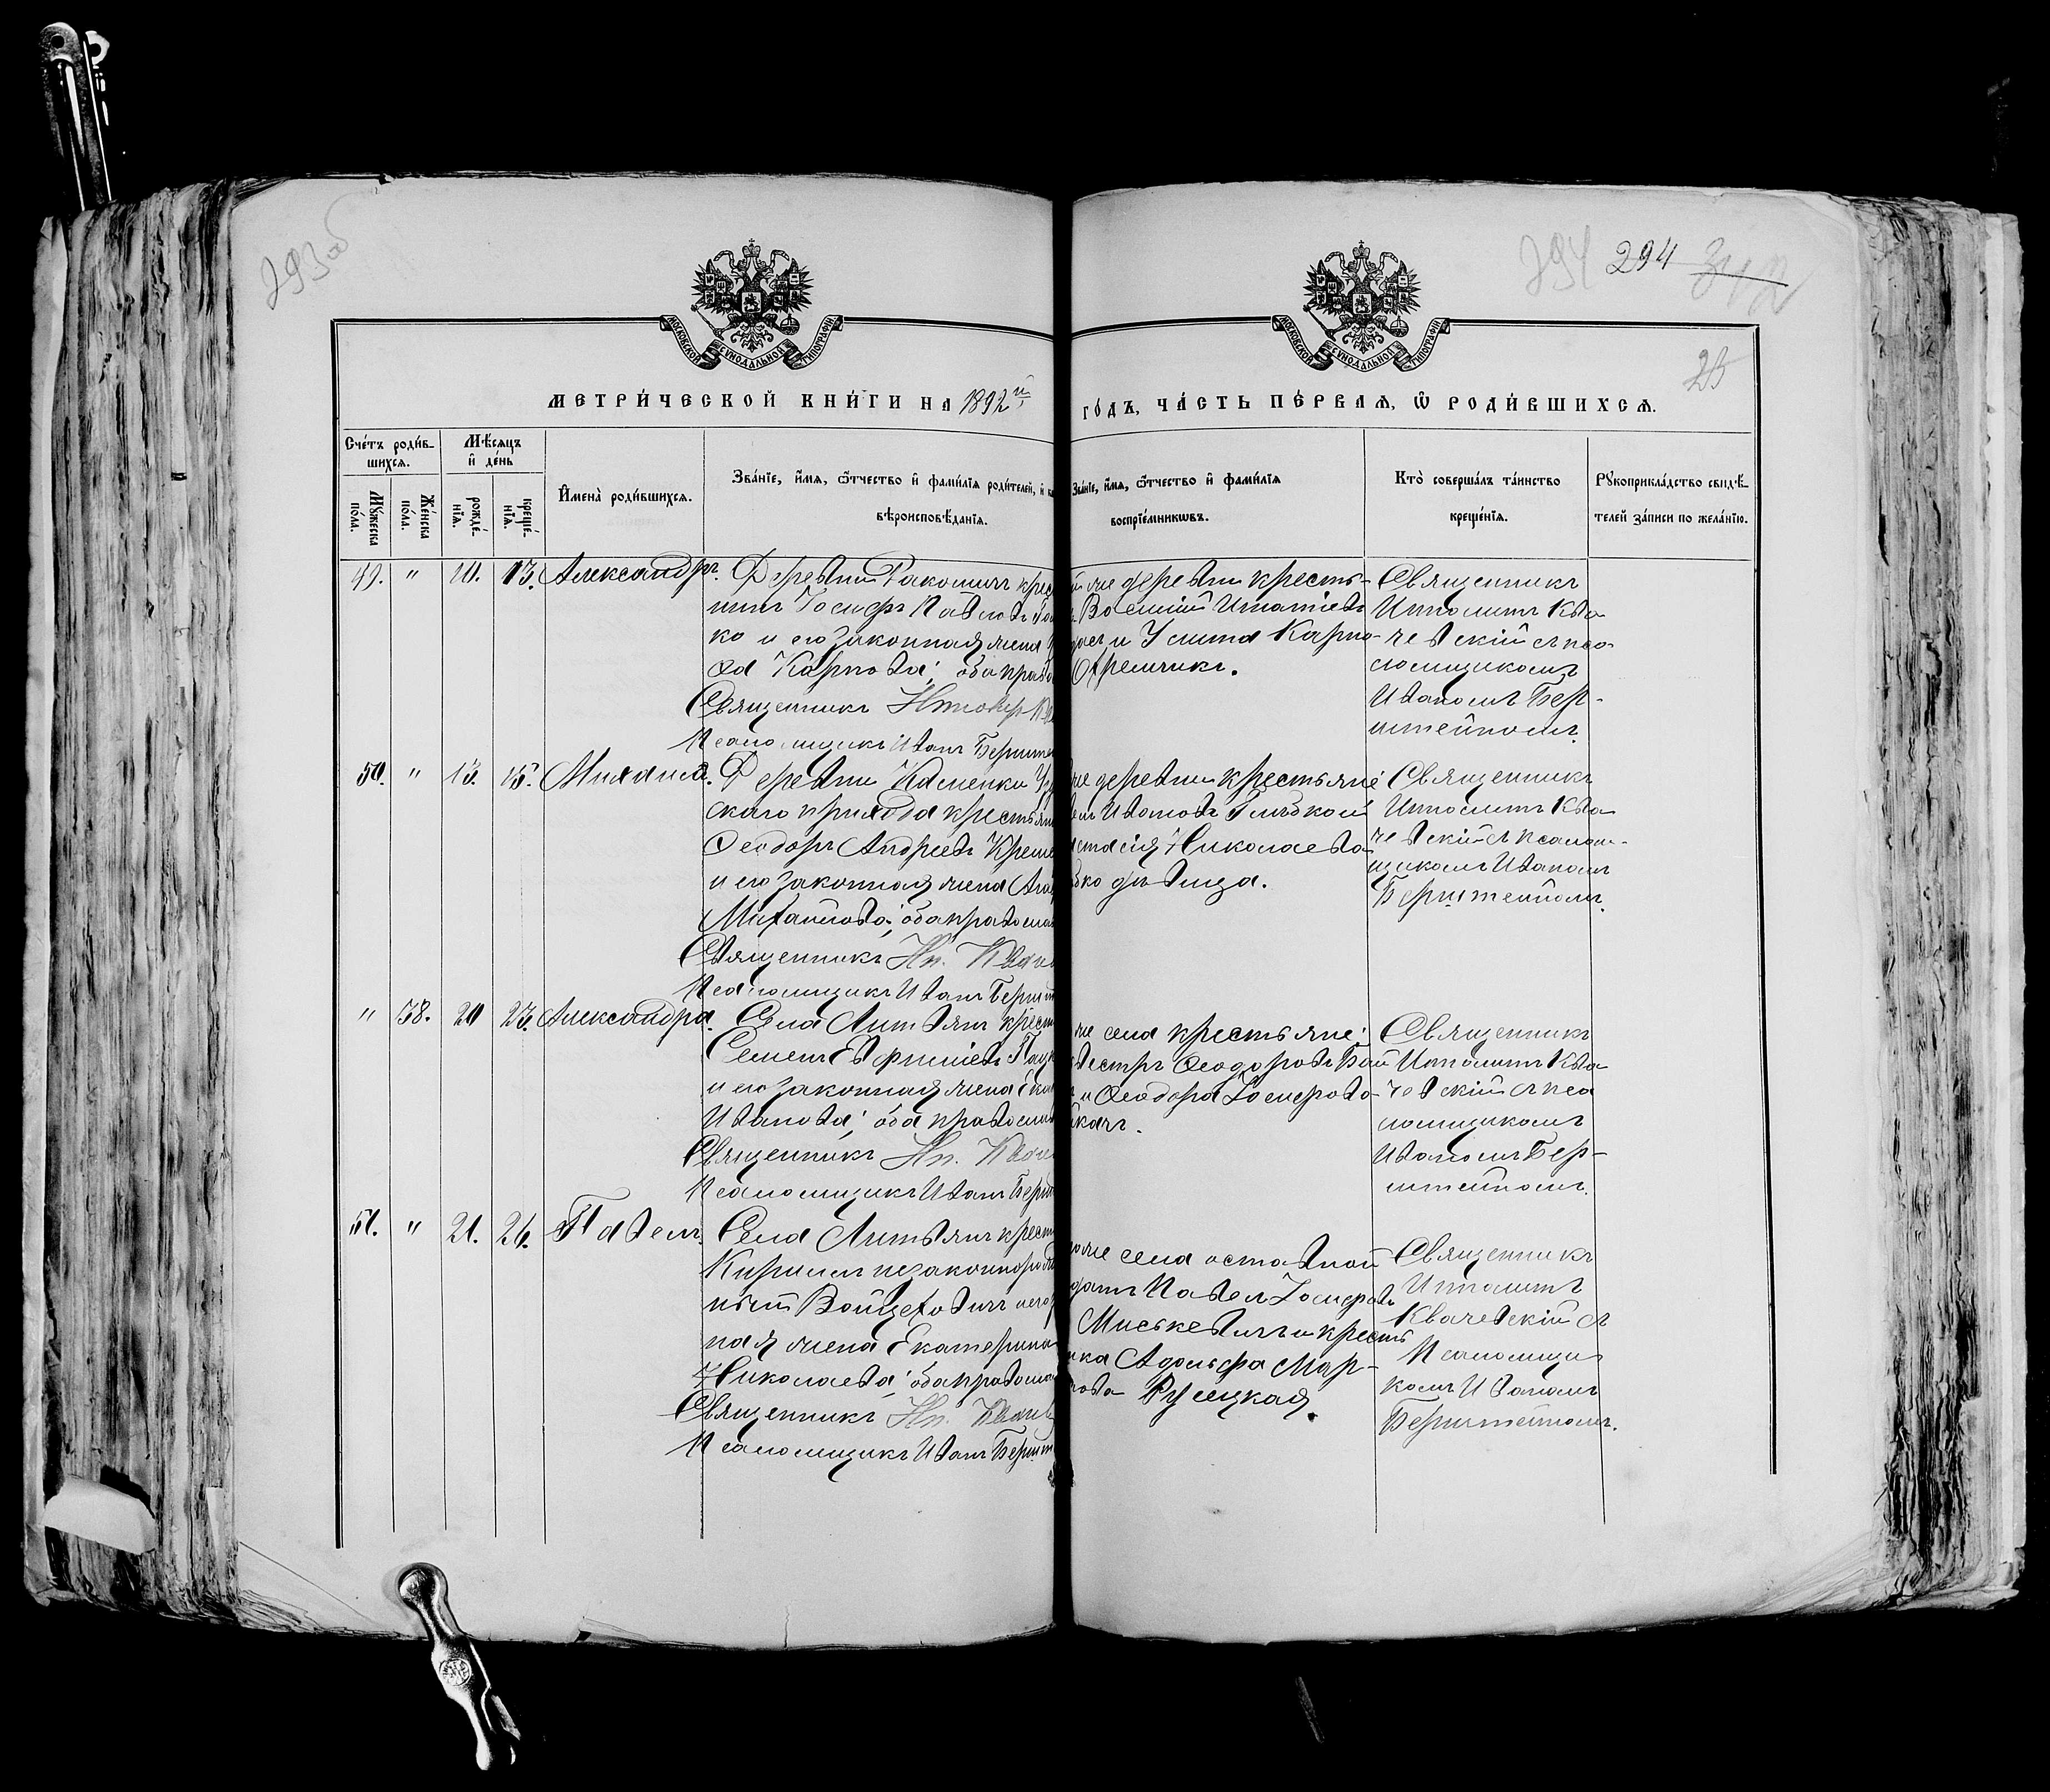 293об
294 294 342
25
МОСКОВСКОЙ СѴНОДАЛЬНОЙ ТИПОГРАФІИ
МОСКОВСКОЙ СѴНОДАЛЬНОЙ ТИПОГРАФІИ
МЕТРИ́ЧЕСКОЙ КНИ́ГИ НА 1892й ГО́ДЪ, ЧА́СТЬ ПЕ́РВАЯ, Ѡ҆ РОДИ́ВШИХСЯ.
Сче́тъ роди́в-
шихся.
Мѣ́сяцъ
и҆ де́нь
Мꙋ́жеска
по́ла.
Же́нска
по́ла.
рожде́-
нїя.
креще́-
нїя.
И҆мена̀ роди́вшихся.
Зва́нїе, и҆́мя, ѻ҆́тчество и҆ фами́лїя роди́телей, и҆
вѣроисповѣ́данїя.
Зва́нїе, и҆́мя, ѻ҆́тчество и҆ фами́лїя
воспрїе́мникѡвъ.
Кто̀ соверша́лъ та́инство
креще́нїя.
Рꙋкоприкла́дство свидѣ́-
телей за́писи по жела́нїю.
49. " 10. 13. Александръ.
Деревни Ракошичъ крес
нинъ Іосифъ Павловъ
ко и его законная жена
Карпова; оба право
Священникъ
Псаломщикъ Иванъ Бернште
же деревни кресть-
Василій Игнатіевъ
и Улита Карпо-
Охремчикъ.
Священникъ
Ипполитъ Ква-
чевскій съ пса-
ломщикомъ
Иваномъ Берн-
штейномъ.
50. " 13. 15. Михаилъ.
Деревни Каменки
скаго прихода крестьян
Ѳеодоръ Андреевъ
и его законная жена
Михайлова; оба православ
Священникъ Ип. Кваче
Псаломщикъ Иванъ Бернш
же деревни крестьяне:
Ивановъ Глыбкой
стасія Николаева
ко дѣвица.
Священникъ
Ипполитъ Ква-
чевскій съ псалом-
щикомъ Иваномъ
Бернштейномъ.
" 38. 20 23. Александра.
Села Литвянъ крест
Семенъ Евфиміевъ
и его законная жена Ека
Иванова; оба православ
Священникъ Ип. Кваче
Псаломщикъ Иванъ Бернш
же села крестьяне:
вестръ Ѳеодоровъ
и Ѳеодора Іосифова
качъ.
Священникъ
Ипполитъ Ква-
чевскій съ пса
ломщикомъ
Иваномъ Берн-
штейномъ.
51. " 21. 26. Павелъ.
Села Литвянъ крест
Кириллъ незаконнорожд
ный Войцеховичъ и его
ная жена Екатерина
Николаева; оба правосла
Священникъ Ип. Кваче
Псаломщикъ Иванъ Бернш
же села отставной
датъ Павелъ Іосифовъ
Миськевичъ и кресть
нка Адольфа Мар-
нова Русецкая.
Священникъ
Ипполитъ
Квачевскій съ
Псаломщи
комъ Иваномъ
Бернштейномъ.